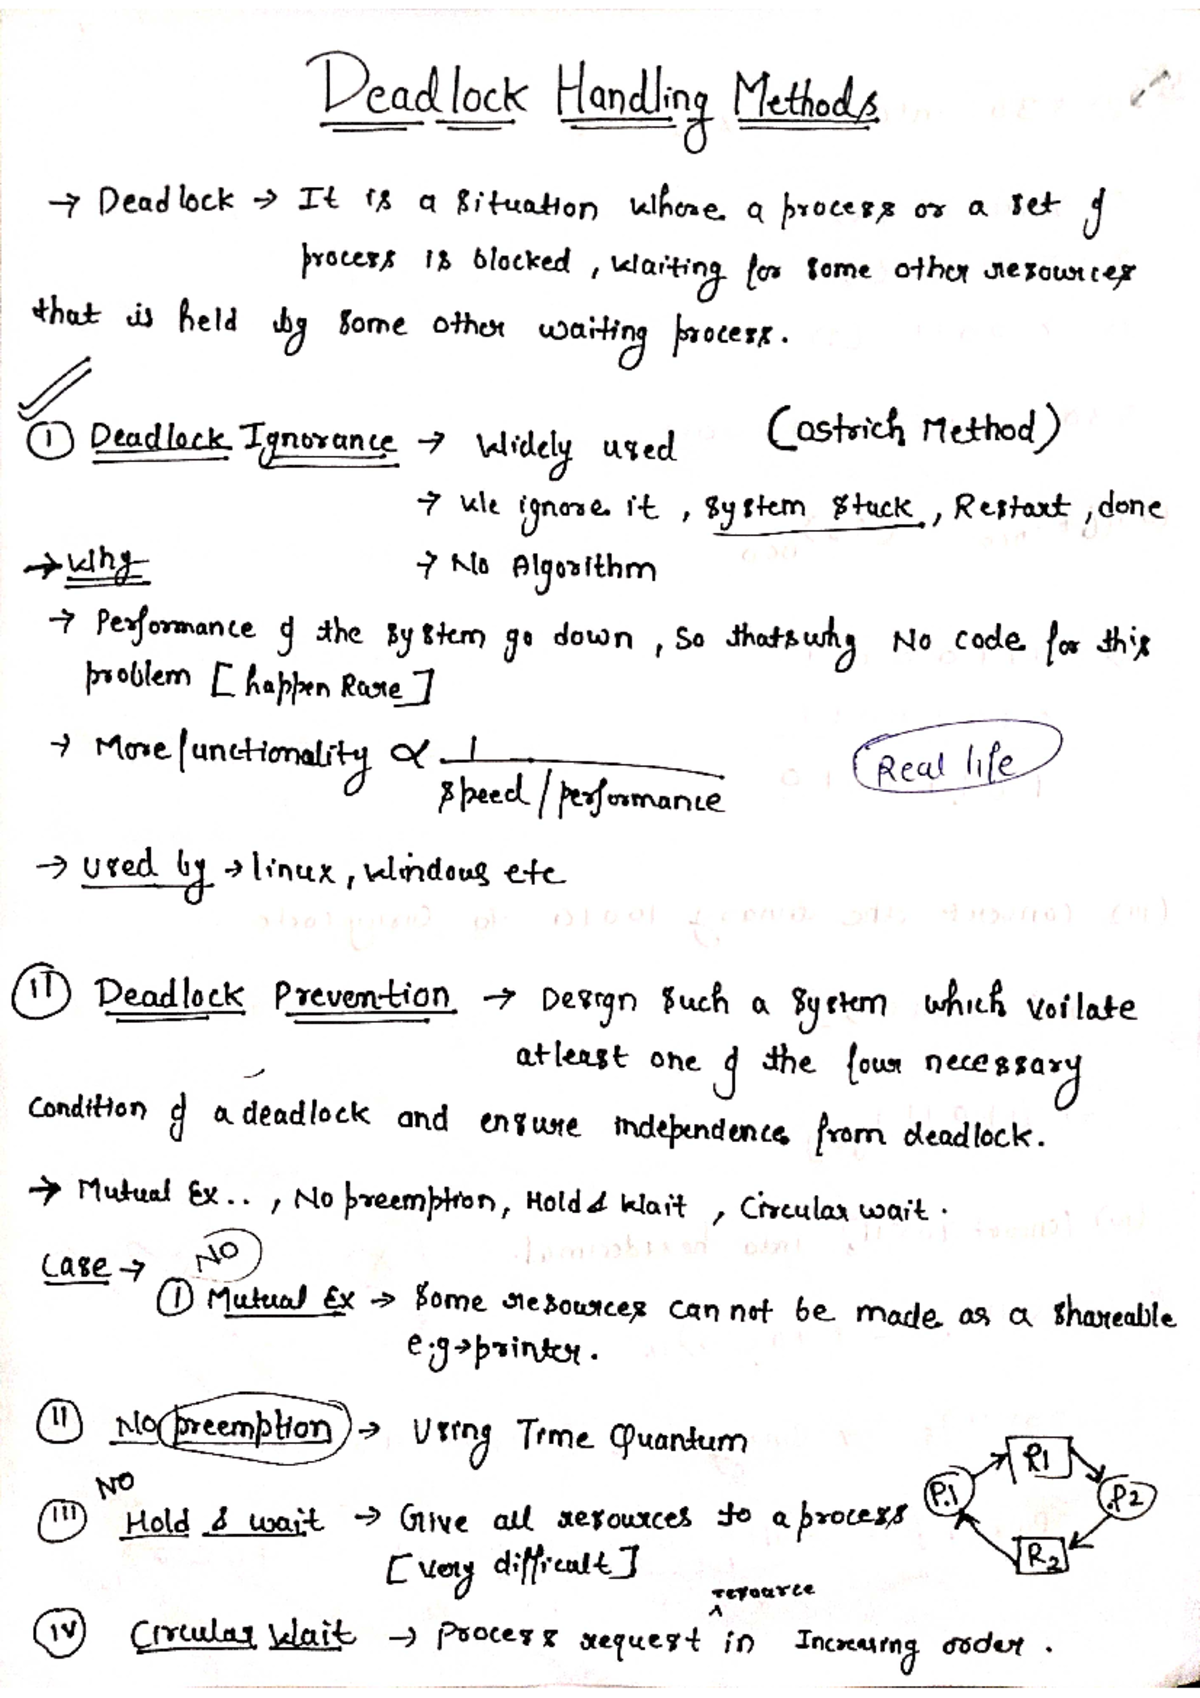 Deadlock Handling Methods
→ Deadlock → It is a situation where a process or a set of
process is blocked, waiting for some other resources
that is held by some other waiting process.
① Deadlock Ignorance → Widely used (ostrich Method)
→ We ignore it, system stuck, Restart, done
→ Why → No Algorithm
→ Performance of the system go down, so thatswhy No code for this
problem [happen Rare]
→ More functionality ∝ 1
speed/performance
Real life
→ used by → linux, Windous etc
II Deadlock Prevention → Design such a system which voilate
atleast one of the four necessary
condition of a deadlock and ensure independence from deadlock.
→ Mutual Ex.., No preemption, Hold & Wait, Circular wait.
Case → NO
① Mutual Ex → Some resources can not be made as a shareable
e.g→printer.
II No preemption → Using Time Quantum
NO
III Hold & wait → Give all resources to a process
[very difficult]
P.1 R1 P2 R2
resource
IV Circular Wait → Process request ^ in Increasing order.